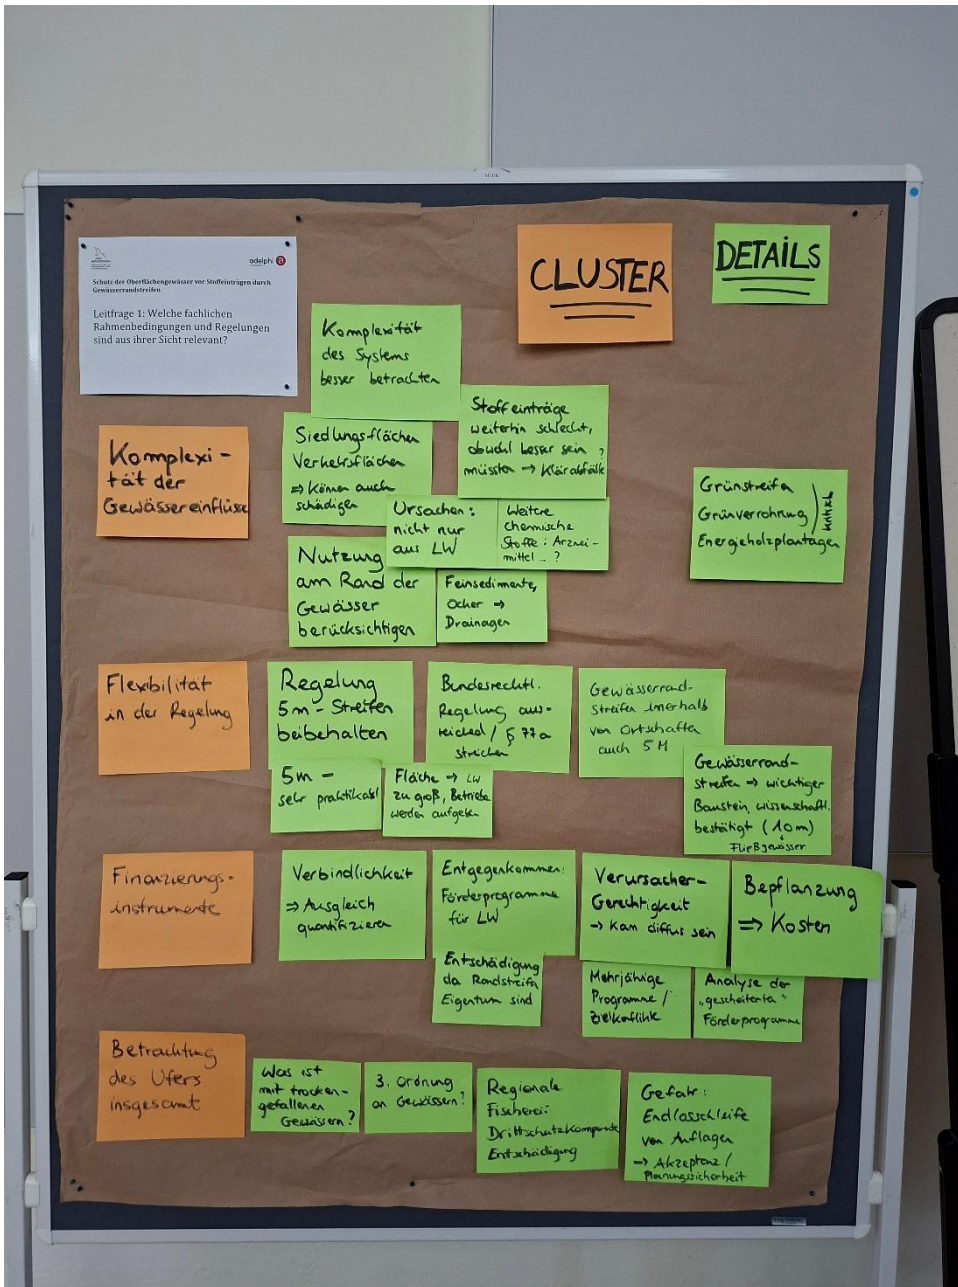 adelphi
Schutz der Oberflächengewässer vor Stoffeinträgen durch
Gewässerrandstreifen
Leitfrage 1: Welche fachlichen
Rahmenbedingungen und Regelungen
sind aus ihrer Sicht relevant?
CLUSTER
DETAILS
Komplexität
des Systems
besser betrachten
Komplexi-
tät der
Gewässereinflüsse
Siedlungsflächen
Verkehrsflächen
⇒ Können auch
schädigen
Stoffeinträge
weiterhin schlecht,
obwohl besser sein
müssten → Klärabfälle ?
Ursachen:
nicht nur
aus LW
Weitere
chemische
Stoffe: Arznei-
mittel ... ?
Nutzung
am Rand der
Gewässer
berücksichtigen
Feinsedimente,
Ocker →
Drainagen
Grünstreifen
Grünverrohrung
Energieholzplantagen
kritisch
Flexibilität
in der Regelung
Regelung
5m-Streifen
beibehalten
Bundesrechtl.
Regelung aus-
reichend / § 77a
streichen
Gewässerrand-
streifen innerhalb
von Ortschaften
auch 5 M
5m -
sehr praktikabel
Fläche → LW
zu groß, Betriebe
werden aufgeben
Gewässerrand-
streifen → wichtiger
Baustein, wissenschaftl.
bestätigt (10m)
Fließgewässer
Finanzierungs-
instrumente
Verbindlichkeit
⇒ Ausgleich
quantifizieren
Entgegenkommen:
Förderprogramme
für LW
Verursacher-
Gerechtigkeit
→ Kann diffus sein
Bepflanzung
⇒ Kosten
Entschädigung
da Randstreifen
Eigentum sind
Mehrjährige
Programme /
Zielkonflikte
Analyse der
„gescheiterten"
Förderprogramme
Betrachtung
des Ufers
insgesamt
Was ist
mit trocken-
gefallenen
Gewässern?
3. Ordnung
an Gewässern?
Regionale
Fischerei:
Drittschutzkomponente
Entschädigung
Gefahr:
Endlosschleife
von Auflagen
→ Akzeptanz /
Planungssicherheit